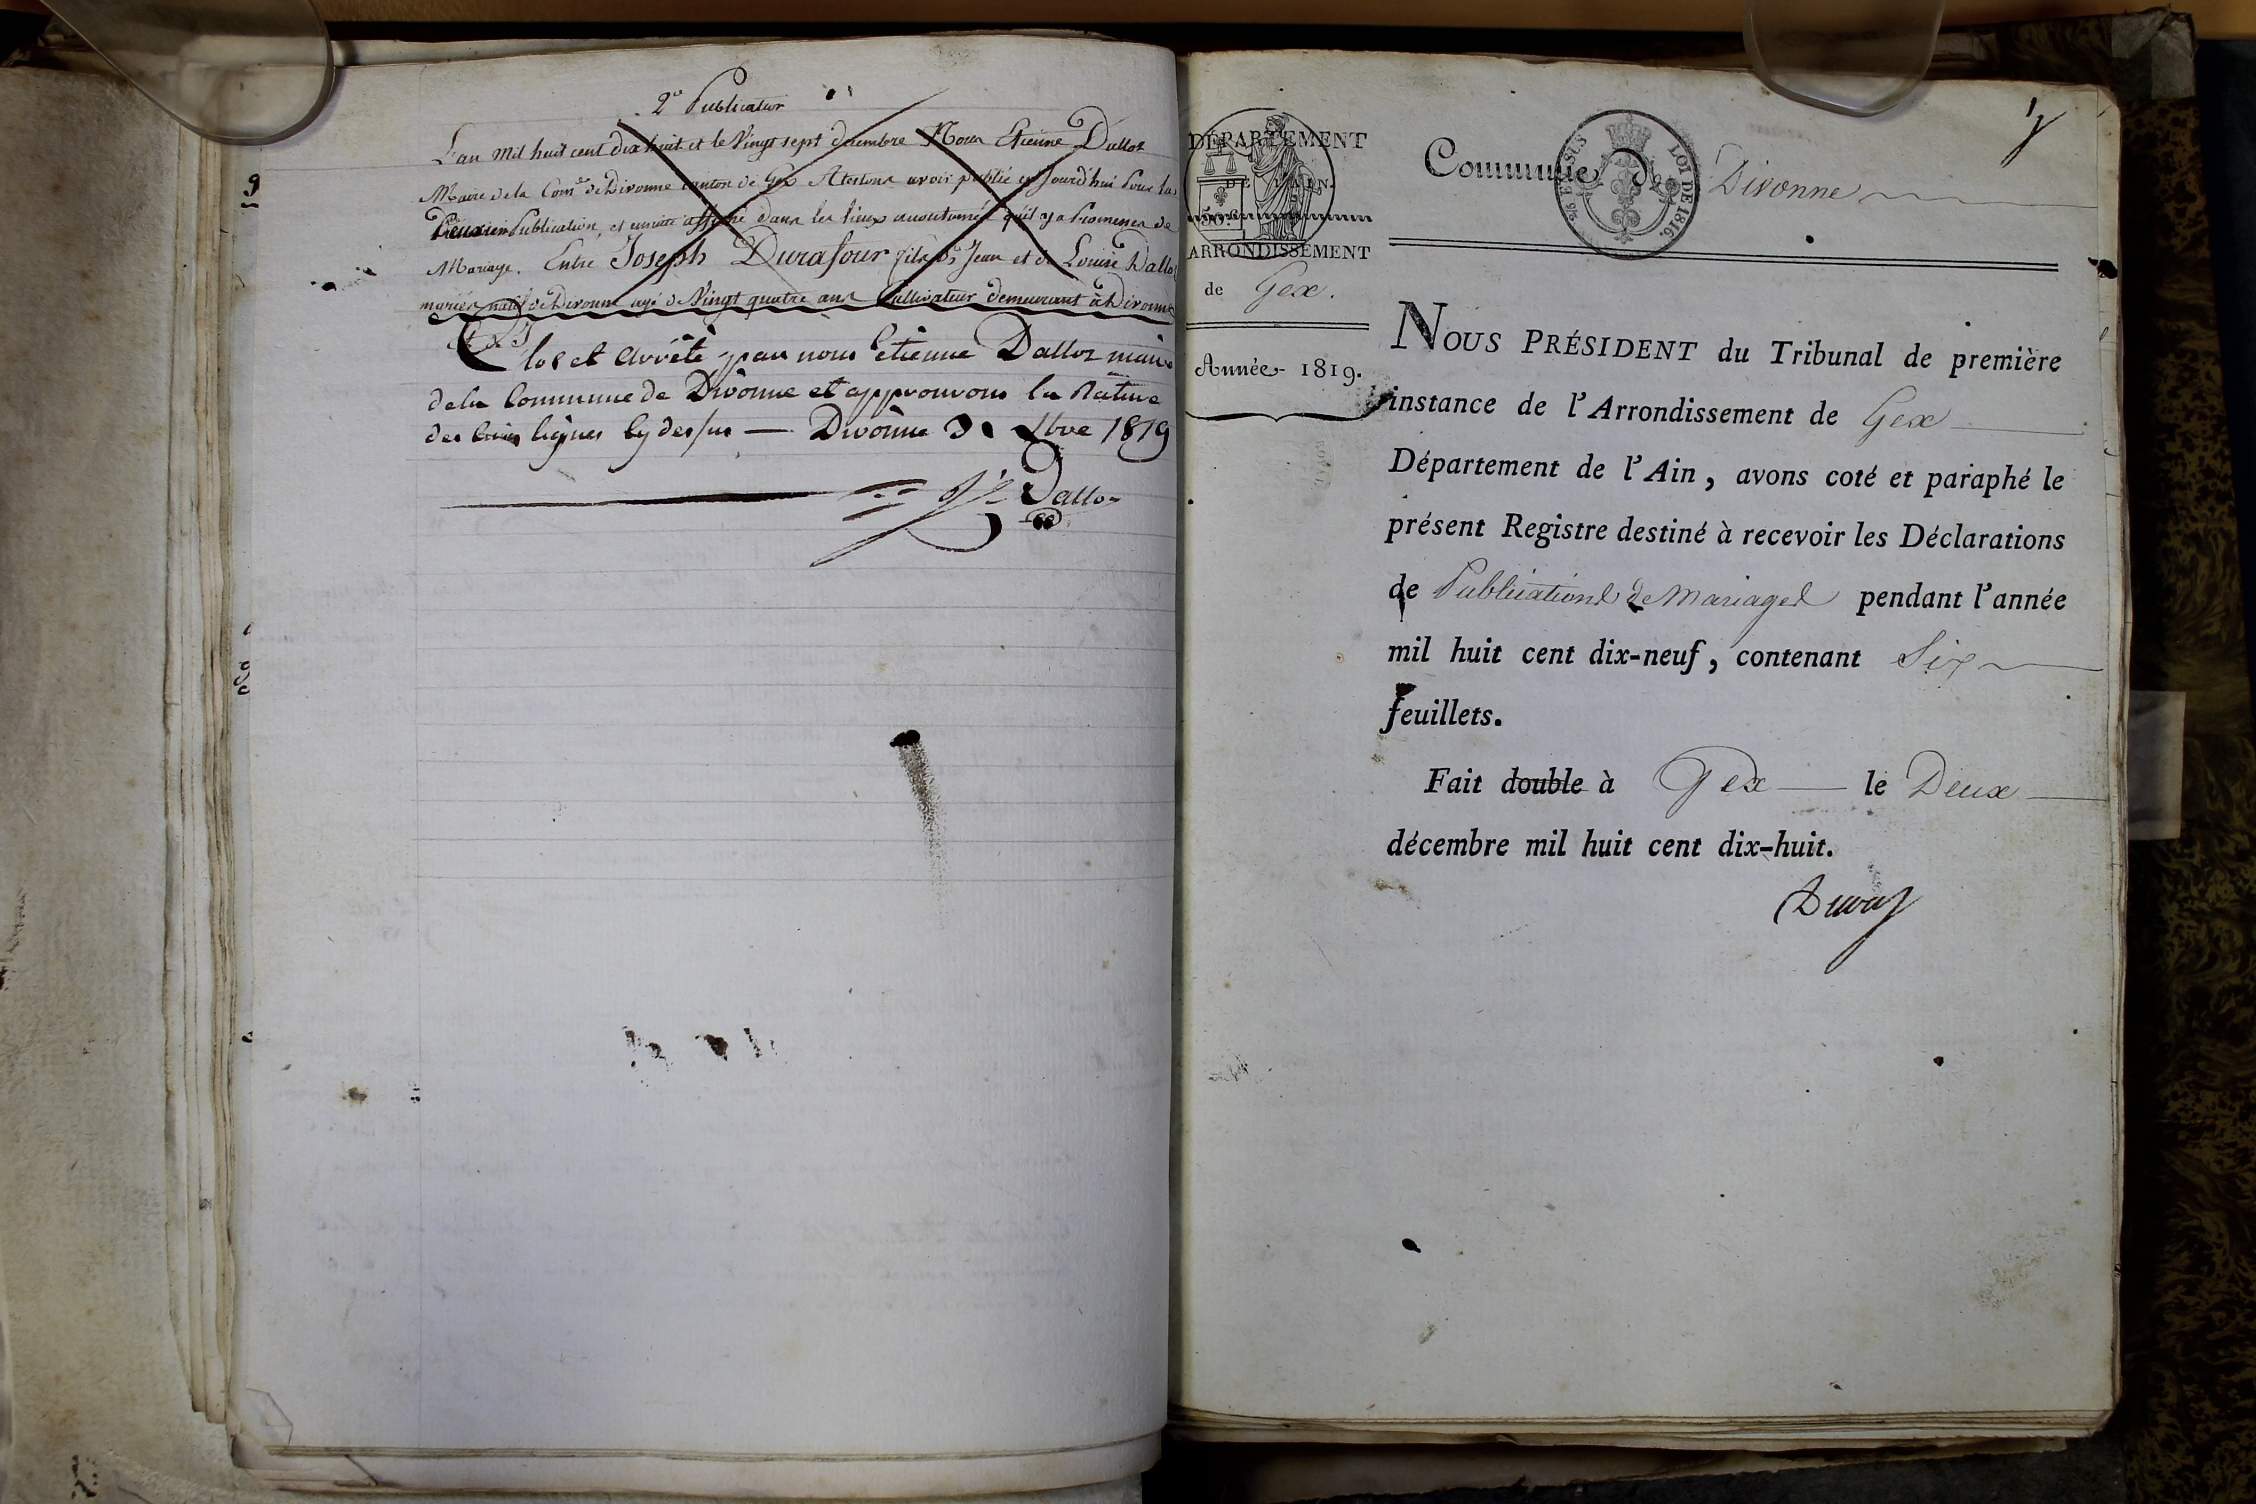 2e Publication
L'an mil huit cent dix huit et le Vingt sept decembre Nous Etienne Dalloz
Maire de la Comne de Divonne canton de Gex Atestons avoir publié ce Jourd'hui Pour la
Deuxieme Publication, et ensuite affiché dans les lieux accoutumés qu'il y a Promesses de
Mariage. Entre Joseph Durafour fils de Jean et de Louise Dalloz
mariés, natif de Divonne agé de Vingt quatre ans Cultivateur demeurant à Divonne
Clos et Arrêté par nous Etienne Dalloz maire
de la Commune de Divonne et approuvons la Rature
des cinq lignes cy dessus — Divonne 1819
Dalloz
DÉPARTEMENT
DE L'AIN.
ARRONDISSEMENT
de Gex.
Année 1819.
Commune de Divonne
& EN SUS
LOI DE 1816.
NOUS PRÉSIDENT du Tribunal de première
instance de l'Arrondissement de Gex
Département de l'Ain, avons coté et paraphé le
présent Registre destiné à recevoir les Déclarations
de Publications de Mariages pendant l'année
mil huit cent dix-neuf, contenant Six
feuillets.
Fait double à Gex le Deux
décembre mil huit cent dix-huit.